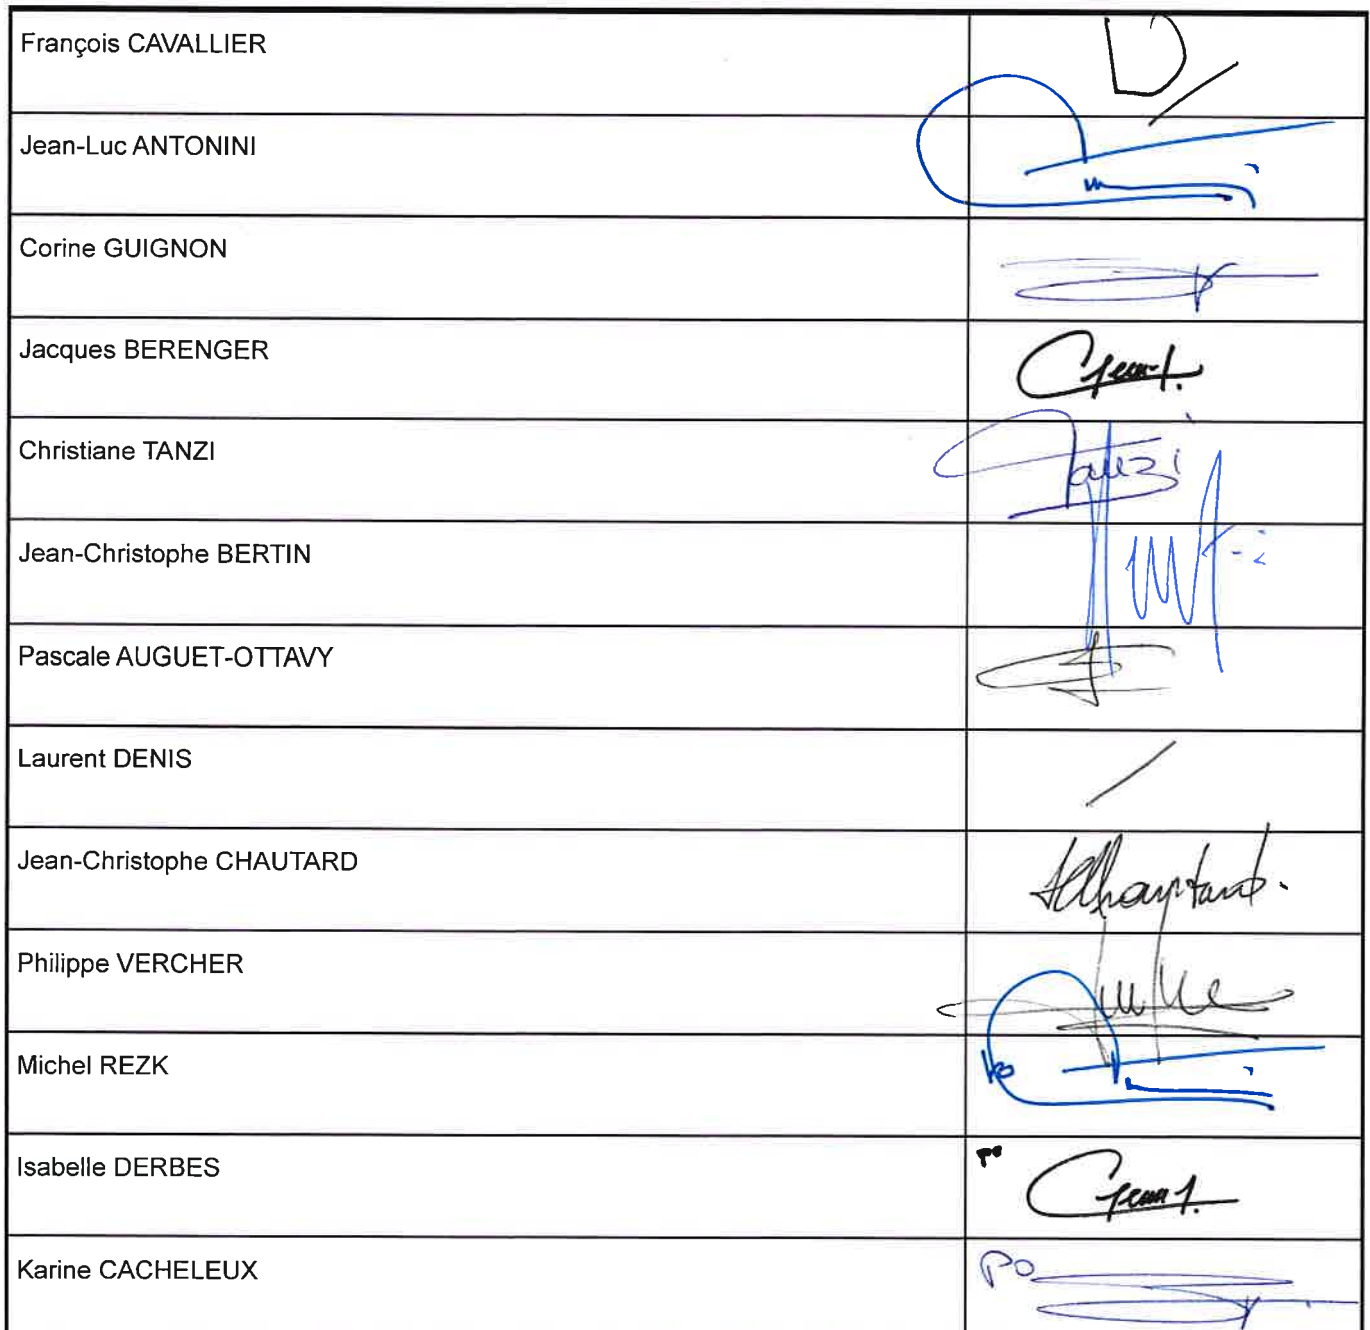 François CAVALLIER
D
Jean-Luc ANTONINI
Corine GUIGNON
Jacques BERENGER
Christiane TANZI
Tanzi
Jean-Christophe BERTIN
Pascale AUGUET-OTTAVY
Laurent DENIS
Jean-Christophe CHAUTARD
Philippe VERCHER
Michel REZK
Po
Isabelle DERBES
po
Karine CACHELEUX
PO